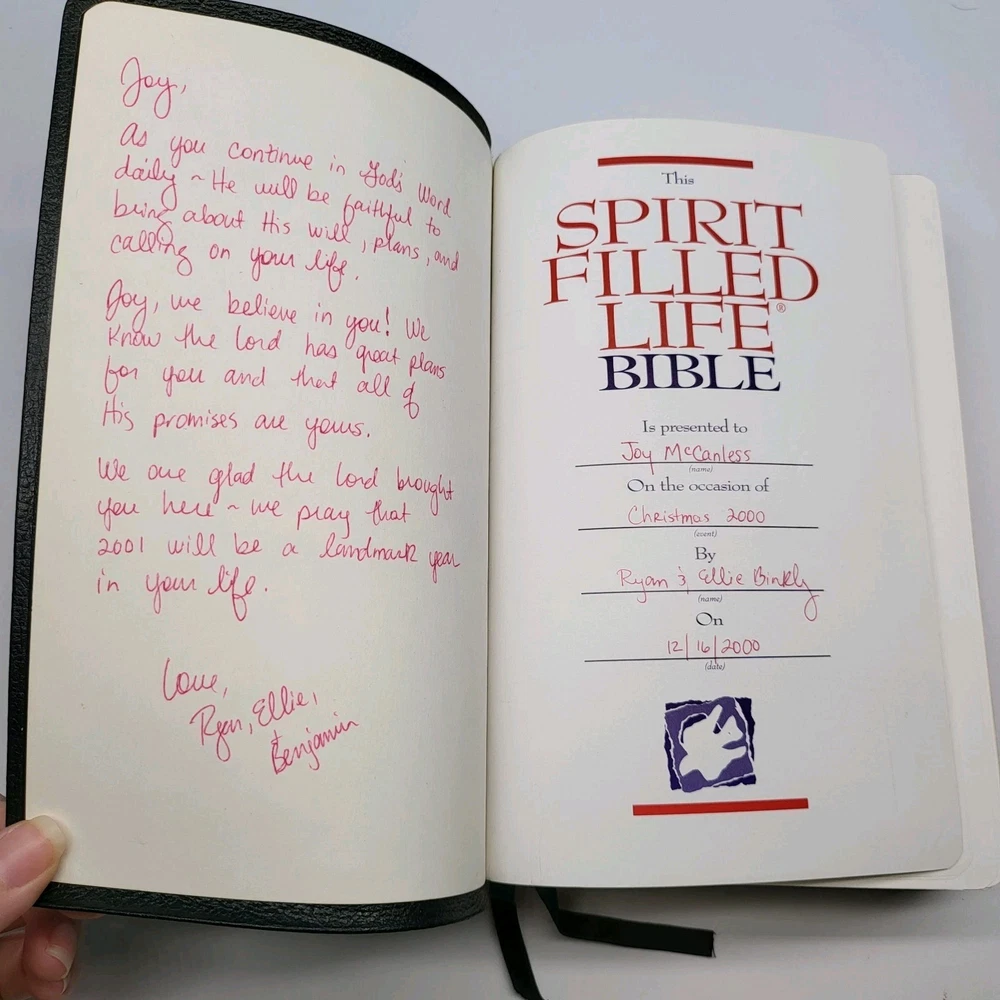 Joy,
As you continue in God's Word
daily ~ He will be faithful to
bring about His will, plans, and
calling on your life.
Joy, we believe in you! We
know the Lord has great plans
for you and that all of
His promises are yours.
We are glad the Lord brought
you here ~ we pray that
2001 will be a landmark year
in your life.
Love,
Ryan, Ellie,
& Benjamin
This
SPIRIT
FILLED
LIFE®
BIBLE
Is presented to
Joy McCanless
(name)
On the occasion of
Christmas 2000
(event)
By
Ryan & Ellie Binkly
(name)
On
12/16/2000
(date)